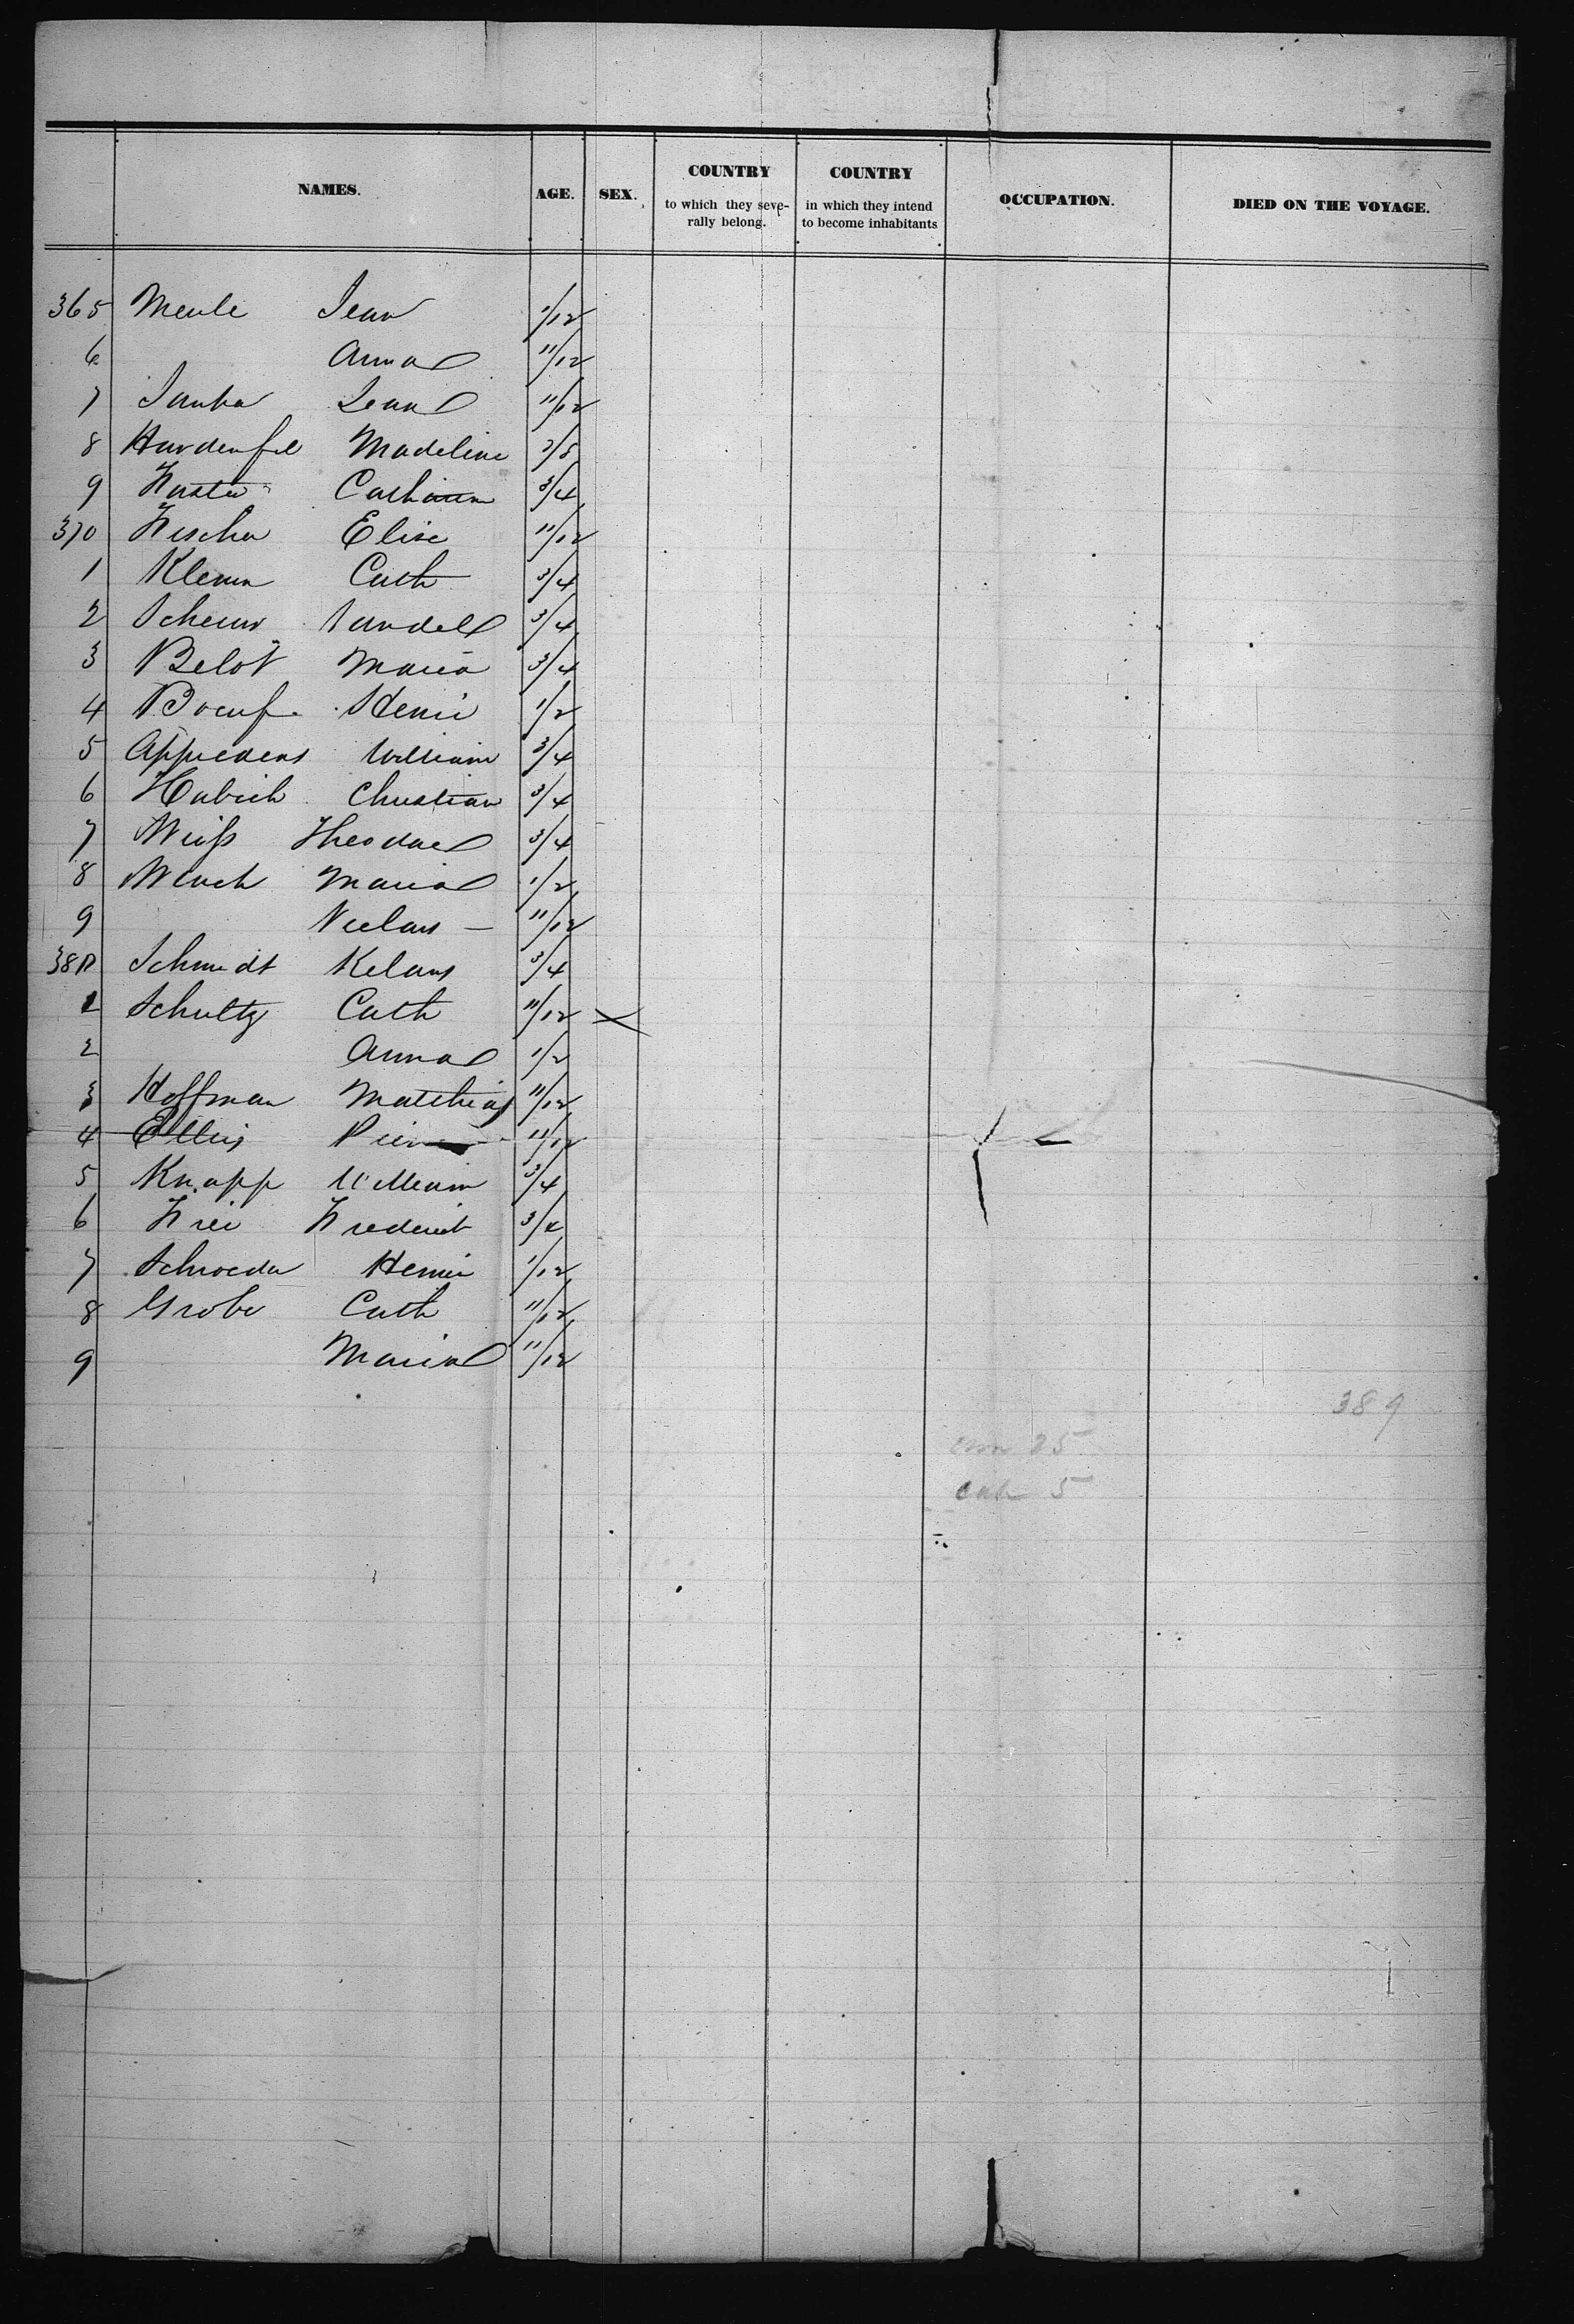 NAMES. AGE. SEX. COUNTRY to which they severally belong. COUNTRY in which they intend to become inhabitants OCCUPATION. DIED ON THE VOYAGE.
365 Meule Jean 1/12
6 Anna 11/12
7 Jean 11/12
8 Madeline
9 3/4
370 Fischer Elise 11/12
1 Klemm Cath 3/4
2 3/4
3 Belot Maria 3/4
4 Boeuf Henri 1/2
5 William 3/4
6 Habich Christian 3/4
7 Weiss Theodore 3/4
8 Maria 1/2
9 11/12
380 Schmidt Kelaus 3/4
1 Schultz Cath 11/12
2 Anna 1/2
3 Hoffman Matthias 11/12
4 Ellis 11/12
5 Knapp William 3/4
6 Frei Frederick 3/4
7 Schroeder Henri 1/12
8 Grobe Cath 11/12
9 Maria 11/12
389
25
5